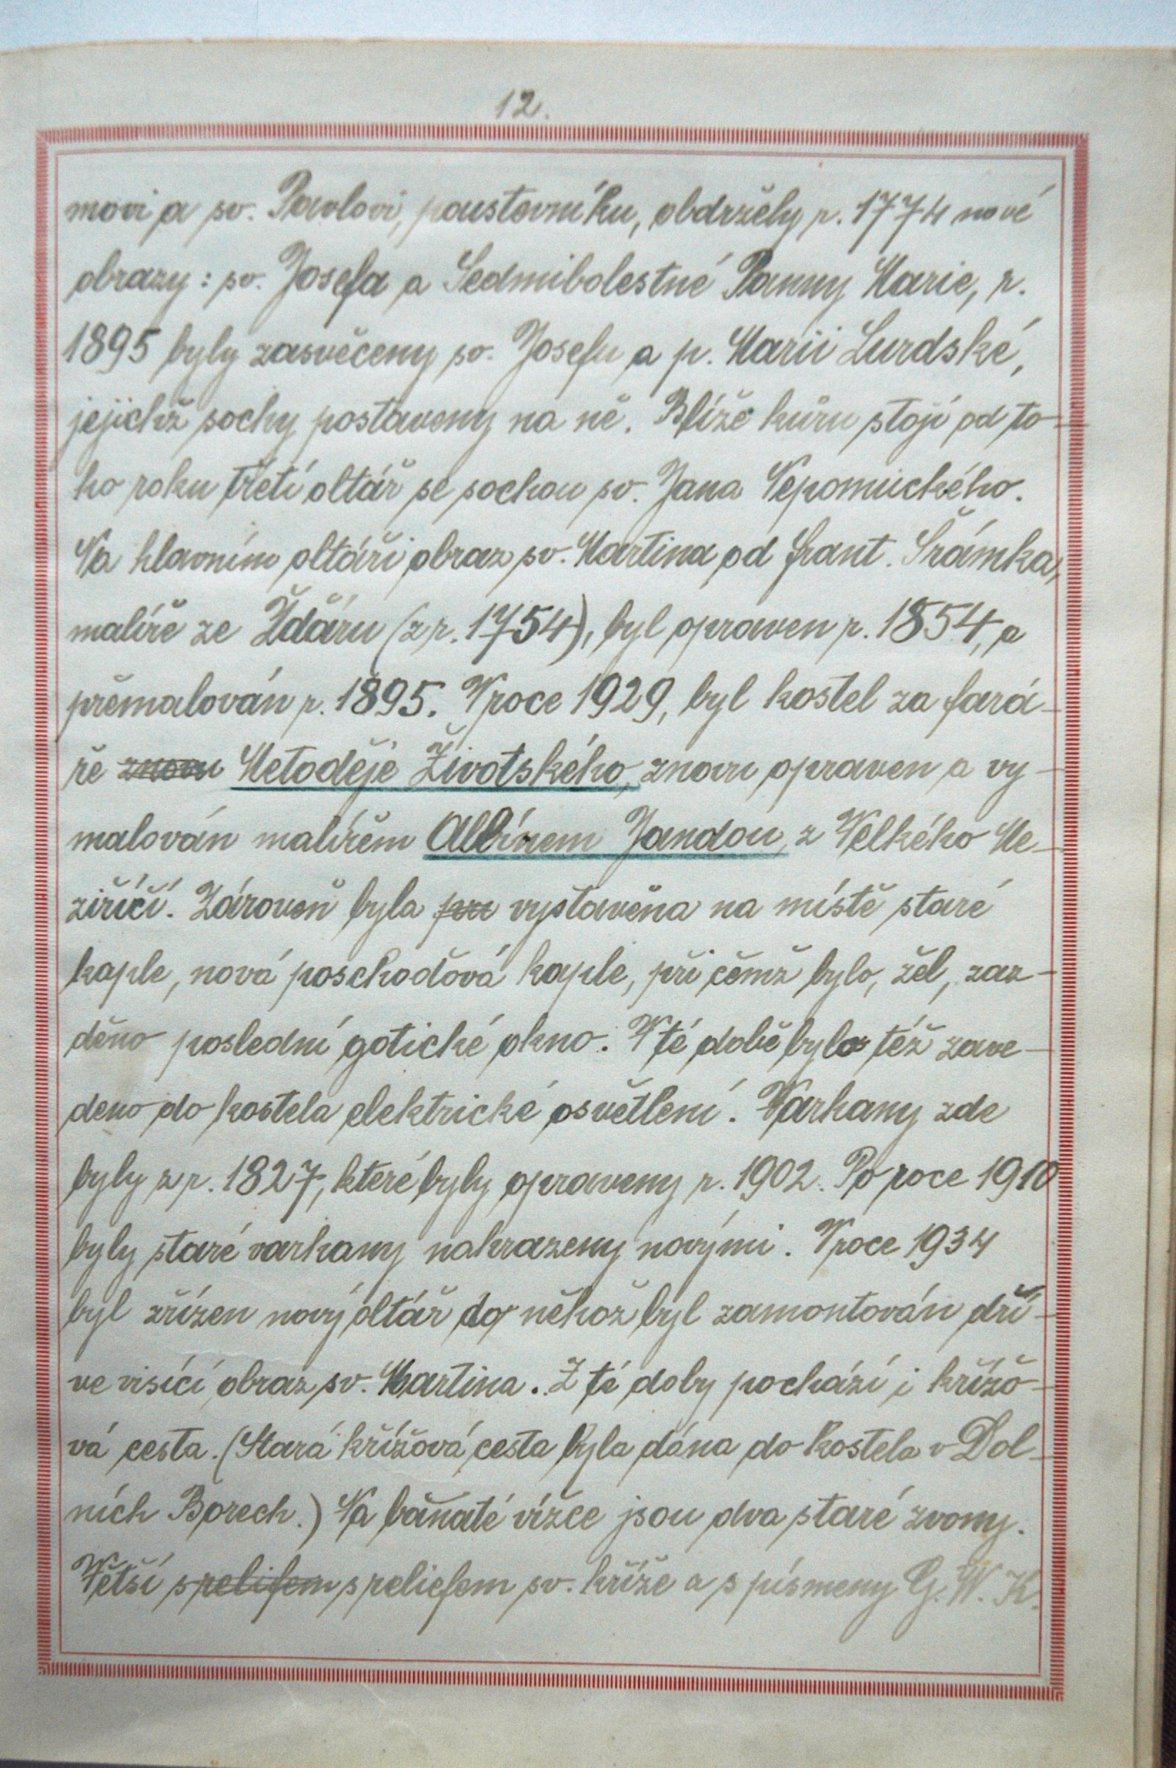 12.
movi a sv. Pavlovi, poustevníku, obdržely r. 1774 nové
obrazy: sv. Josefa a Sedmibolestné Panny Marie, r.
1895 byly zasvěceny sv. Josefu a p. Marii Lurdské,
jejichž sochy postaveny na ně. Blíže kůru stojí od to-
ho roku třetí oltář se sochou sv. Jana Nepomuckého.
Na hlavním oltáři obraz sv. Martina od Frant. Šrámka,
malíře ze Žďáru (z r. 1754), byl opraven r. 1854, a
přemalován r. 1895. V roce 1929, byl kostel za fará-
ře znovu Metoděje Životského, znovu opraven a vy-
malován malířem Albínem Jandou, z Velkého Me-
ziříčí. Zároveň byla vystavěna na místě staré
kaple, nová poschoďová kaple, při čemž bylo, žel, zaz-
děno poslední gotické okno. V té době bylo též zave-
deno do kostela elektrické osvětlení. Varhany zde
byly z r. 1827, které byly opraveny r. 1902. Po roce 1910
byly staré varhany nahrazeny novými. V roce 1934
byl zřízen nový oltář do něhož byl zamontován dří-
ve visící obraz sv. Martina. Z té doby pochází i křížo-
vá cesta. (Stará křížová cesta byla dána do kostela v Dol-
ních Borech.) Na báňaté vížce jsou dva staré zvony.
Větší s relifem s reliefem sv. kříže a s písmeny G. W. K.